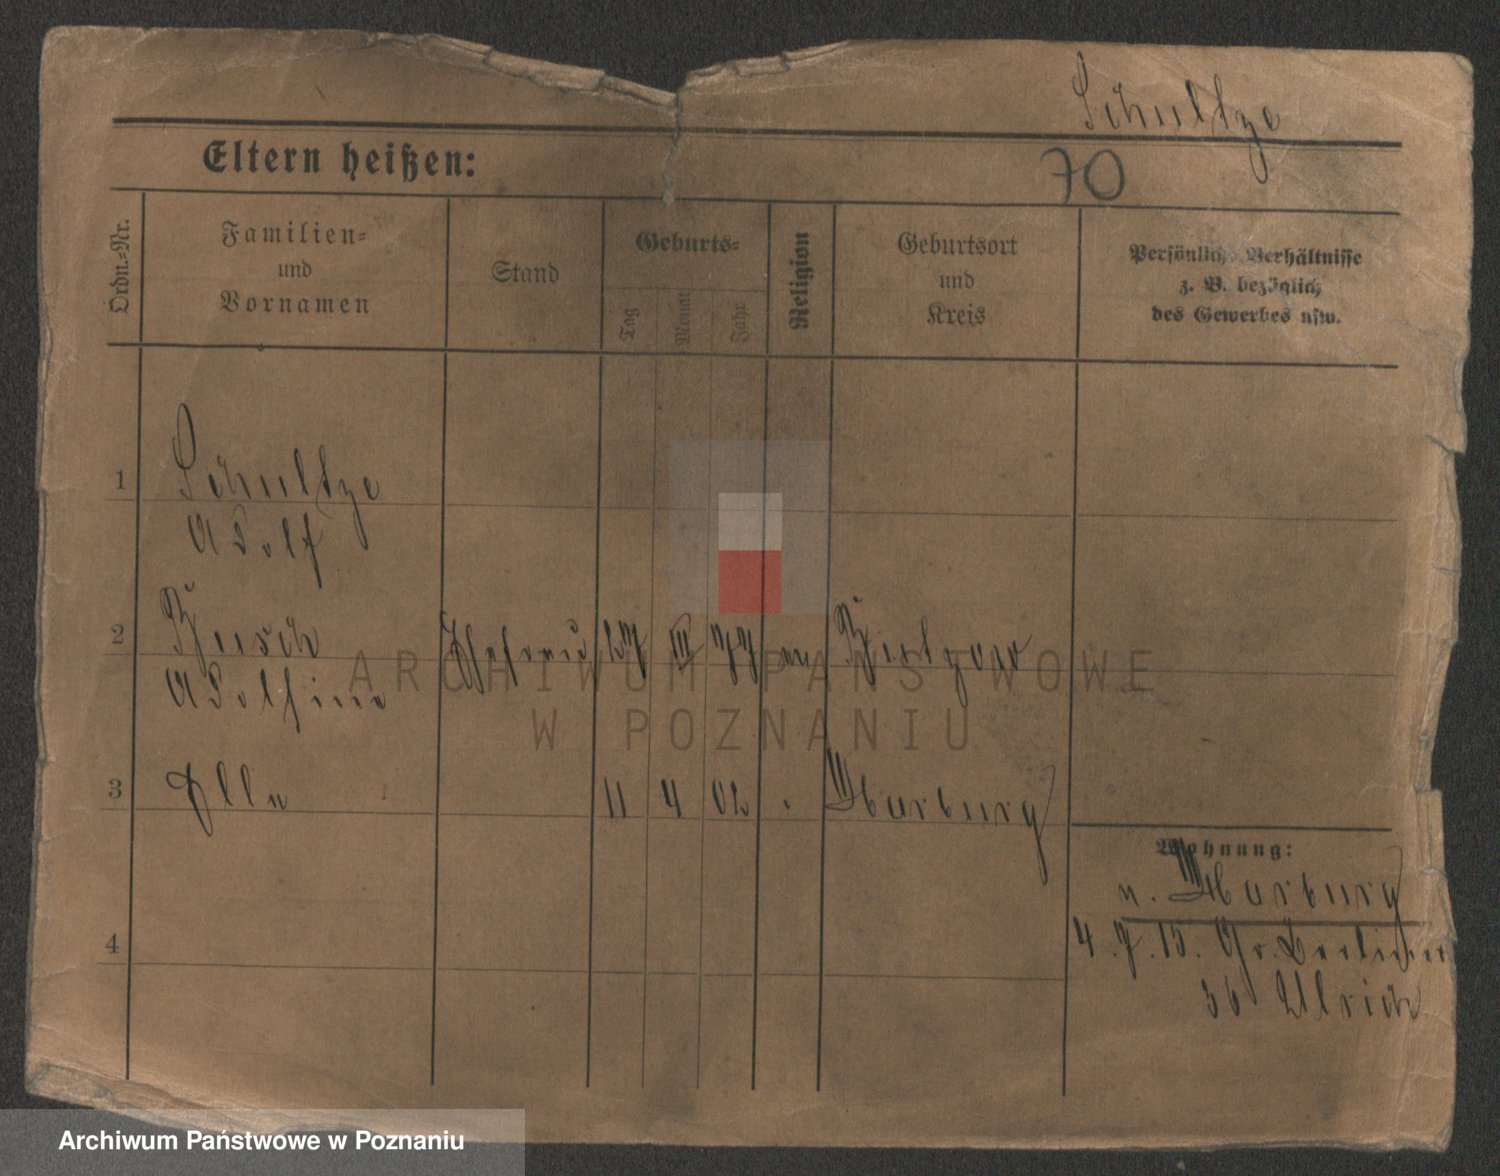 Schultze
Eltern heißen:
70
Ordn.-Nr.
Familien-
und
Vornamen
Stand
Geburts-
Tag
Monat
Jahr
Religion
Geburtsort
und
Kreis
Persönliche Verhältnisse
z. B. bezüglich
des Gewerbes usw.
1 Schultze
Adolf
2 Busch
Adolfine Ehefrau 27 III 77 ev
3 Ella 11 4 02 Marburg
Wohnung:
n. Marburg
4. 7. 15. Gr. Berliner
36 Ullrich
4
ARCHIWUM PAŃSTWOWE
W POZNANIU
Archiwum Państwowe w Poznaniu